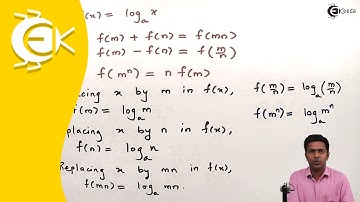 (x) = logₐ x
f(m) + f(n) = f(mn)
f(m) - f(n) = f(m/n)
f(mⁿ) = n f(m)
lacing x by m in f(x),
f(m) = logₐ m
placing x by n in f(x),
f(n) = logₐ n
Replacing x by mn in f(x),
f(mn) = logₐ mn.
f(m/n) = logₐ(m/n)
f(mⁿ) = logₐ mⁿ
Ekeeda